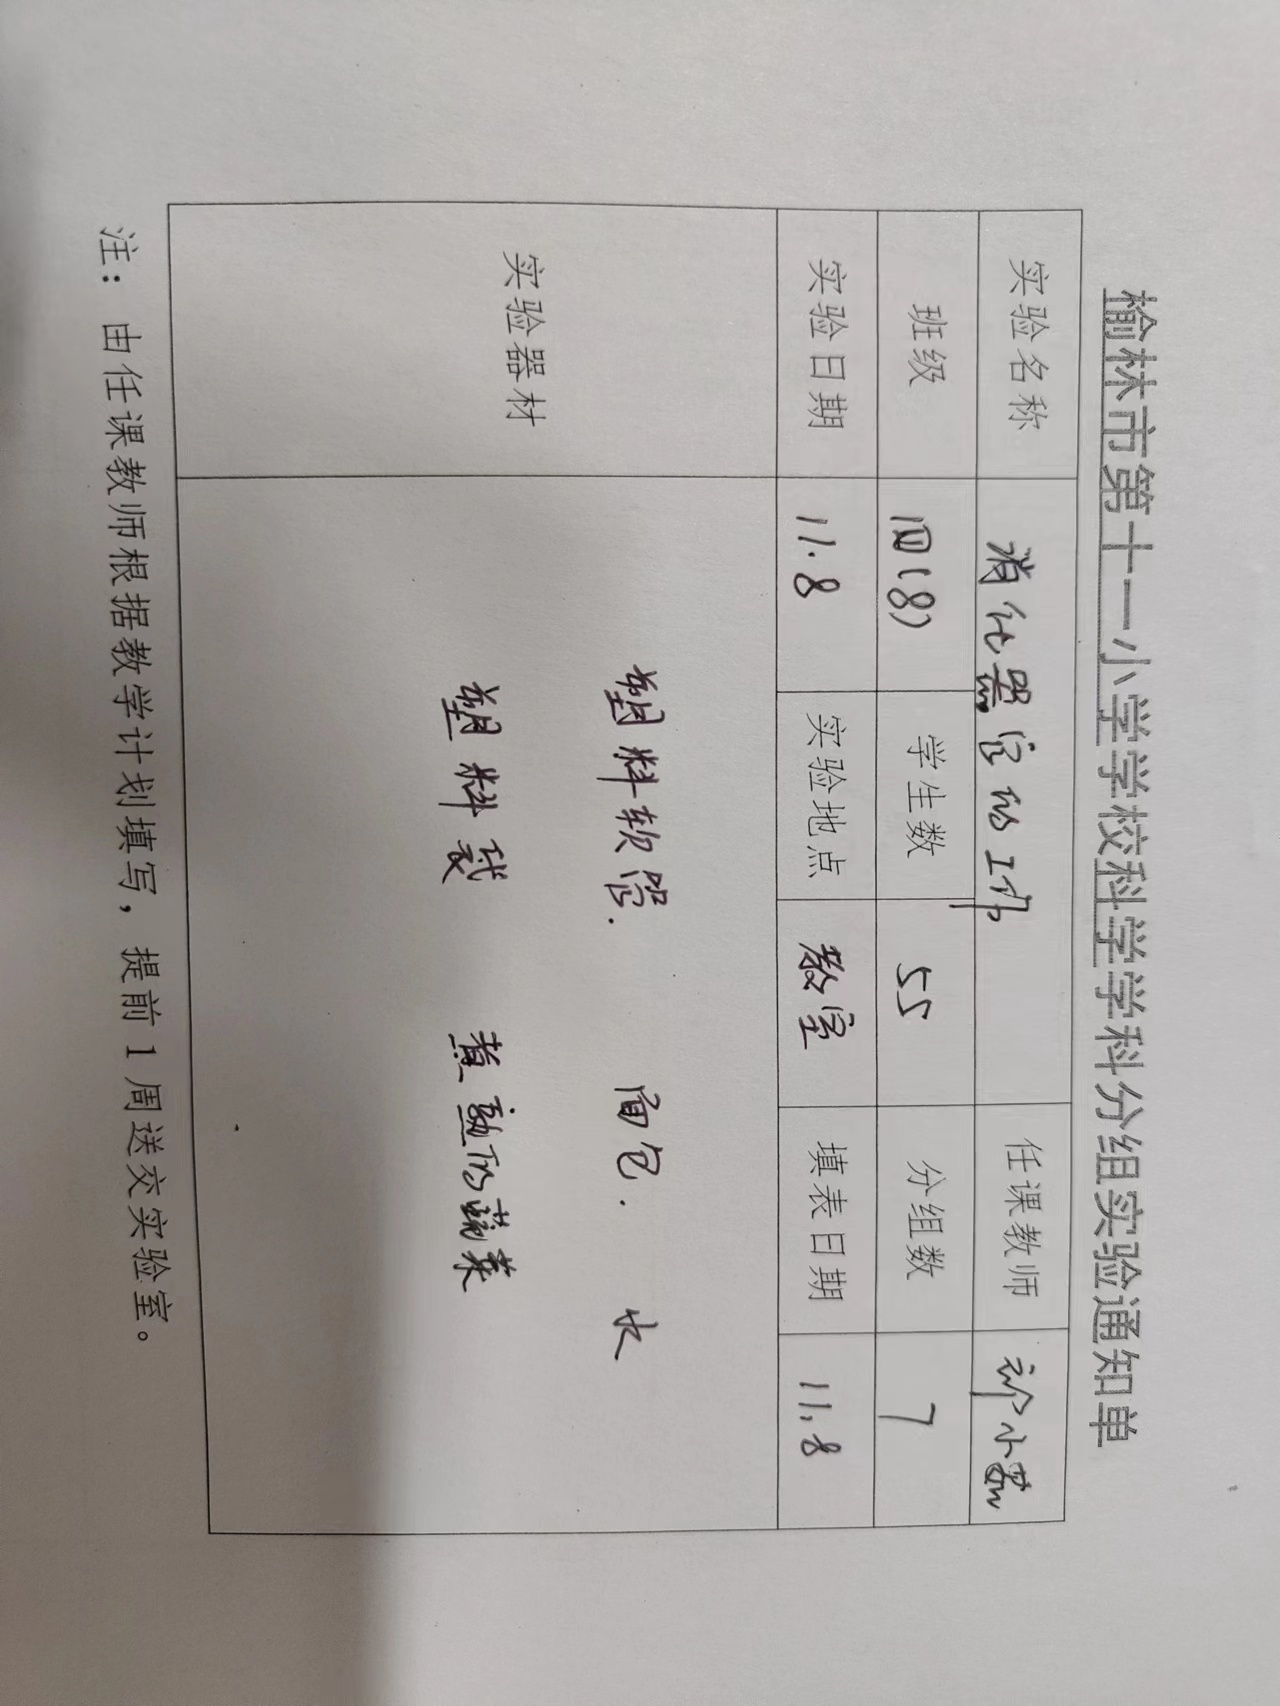 榆林市第十一小学学校科学学科分组实验通知单
实验名称 消化器官的工作 任课教师
班级 四(8) 学生数 55 分组数 7
实验日期 11.8 实验地点 教室 填表日期 11.8
实验器材
塑料软管. 面包. 水
塑料袋 煮熟的蔬菜
注：由任课教师根据教学计划填写，提前1周送交实验室。